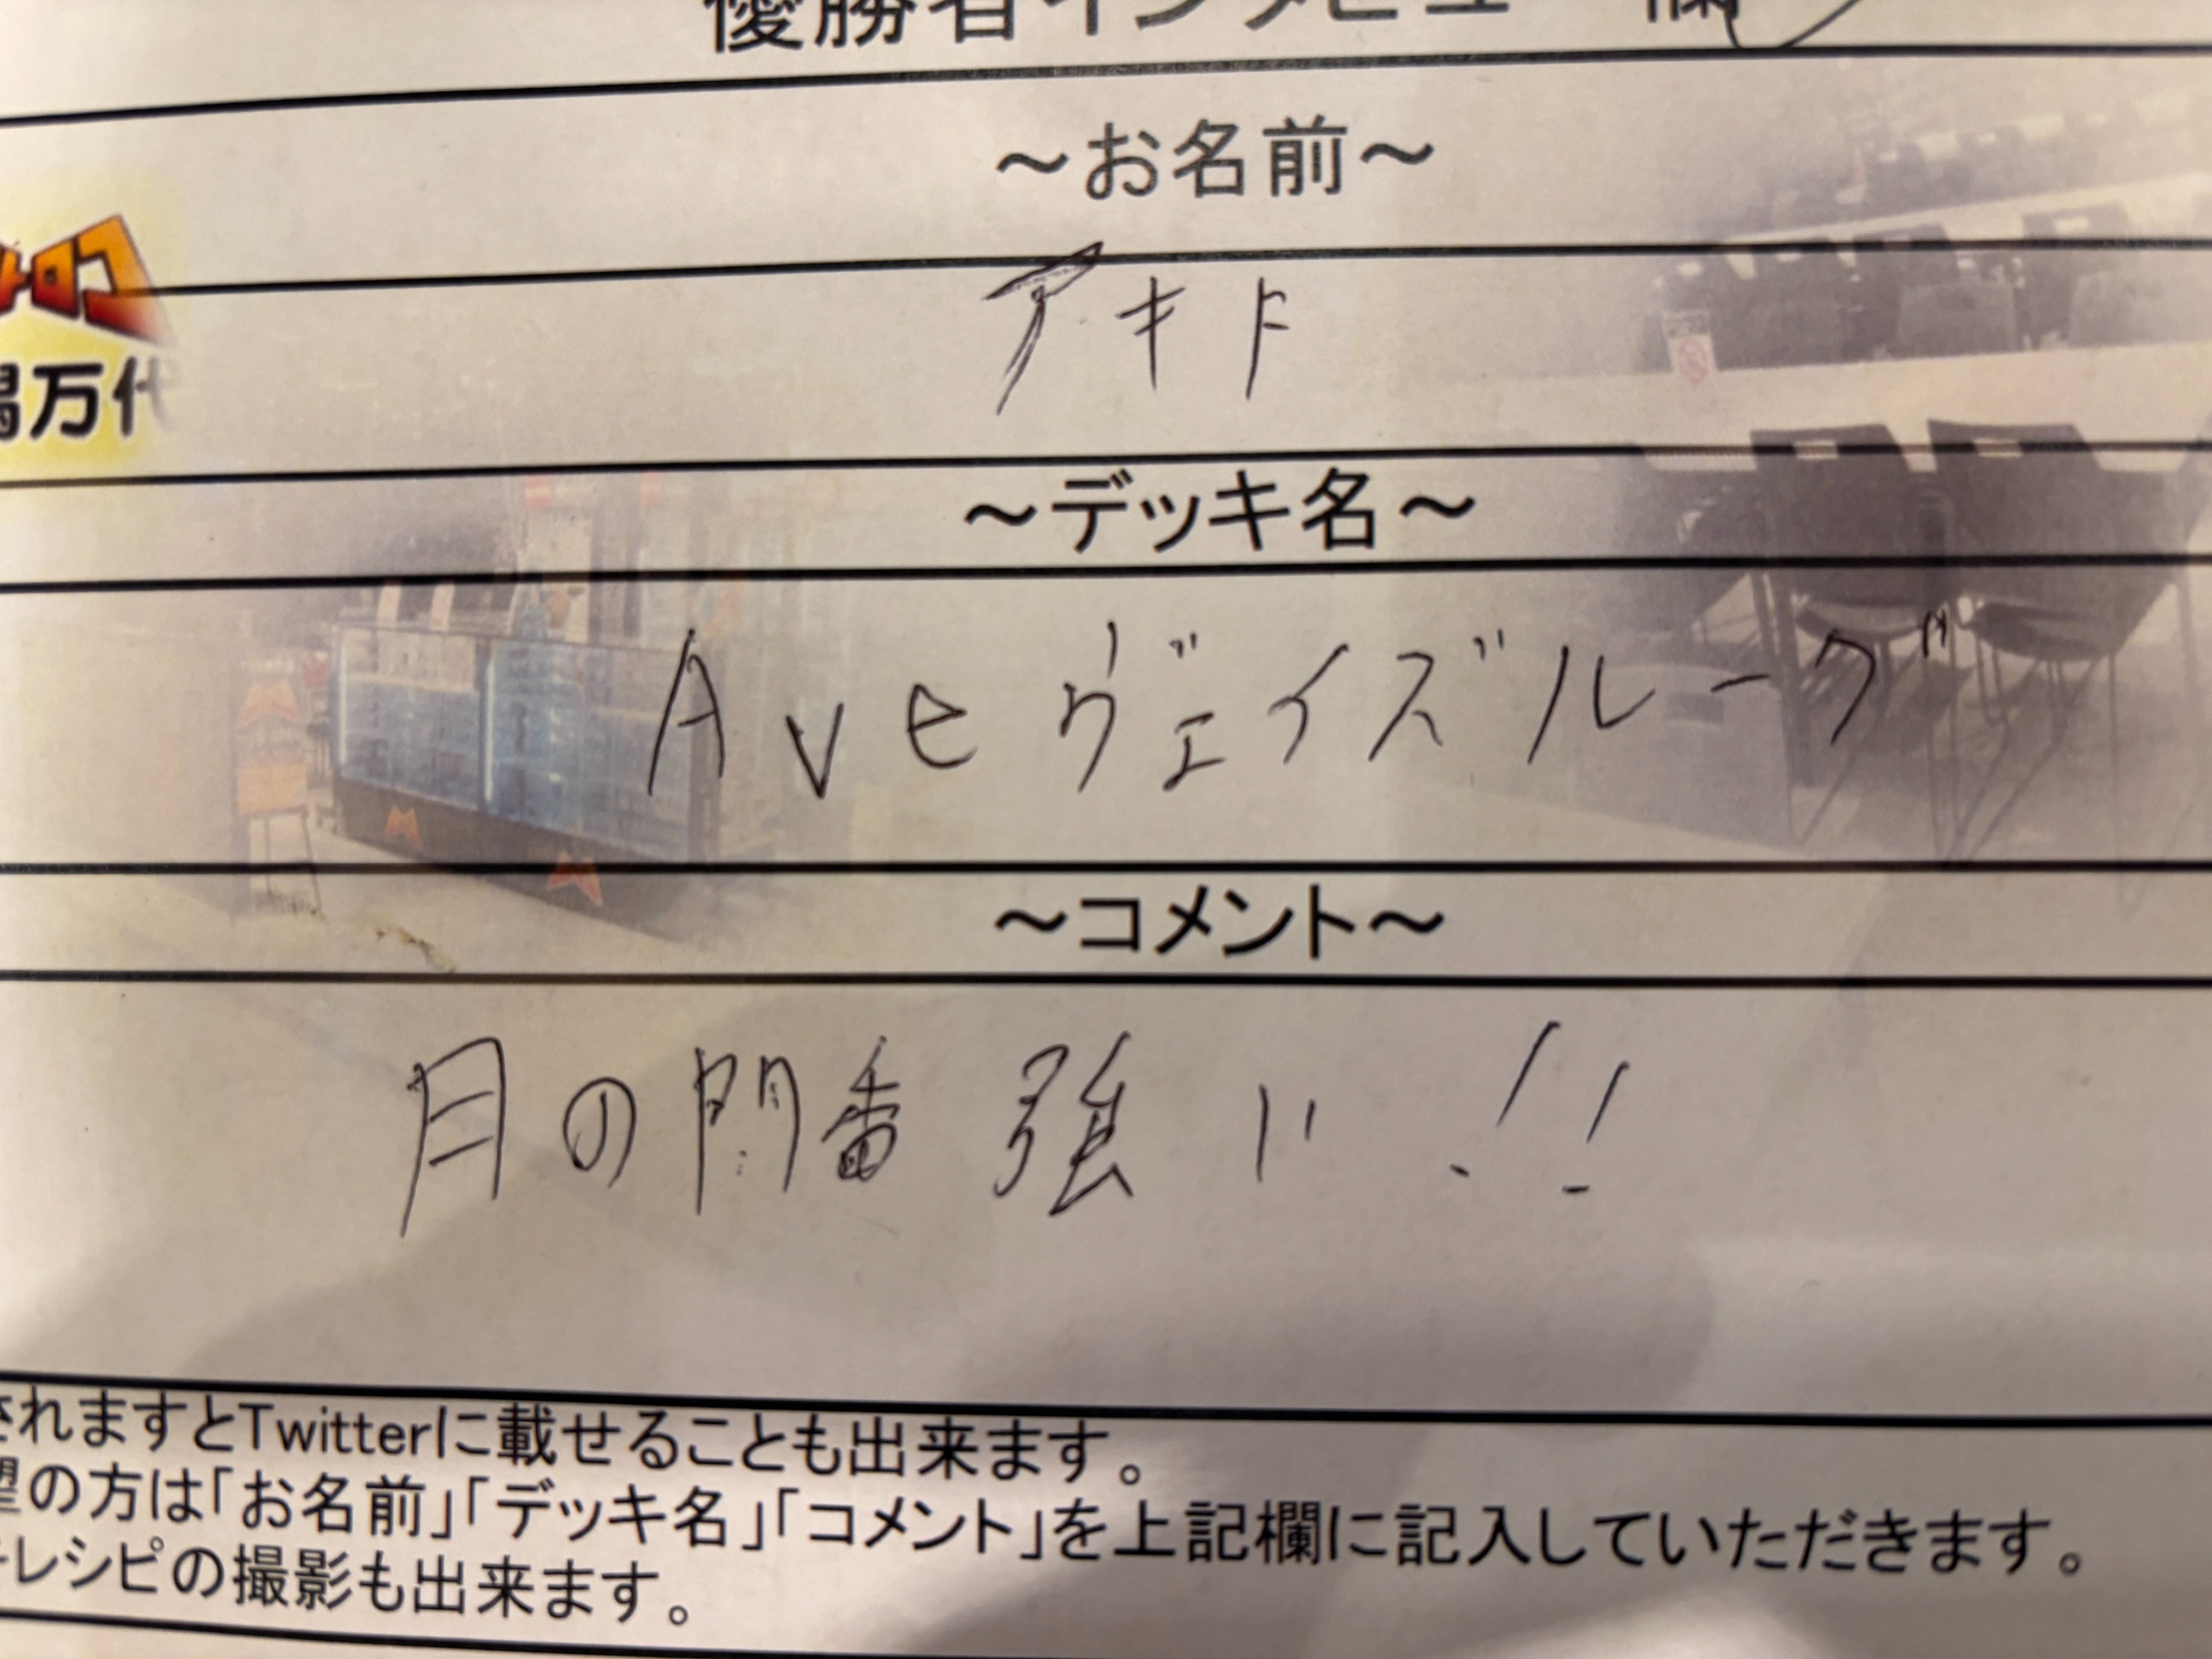 優勝者インタビュー欄
～お名前～
トロコ
潟万代
アキト
～デッキ名～
Aveヴェイズルーグ
～コメント～
月の門番 強い!!
されますとTwitterに載せることも出来ます。
望の方は「お名前」「デッキ名」「コメント」を上記欄に記入していただきます。
レシピの撮影も出来ます。